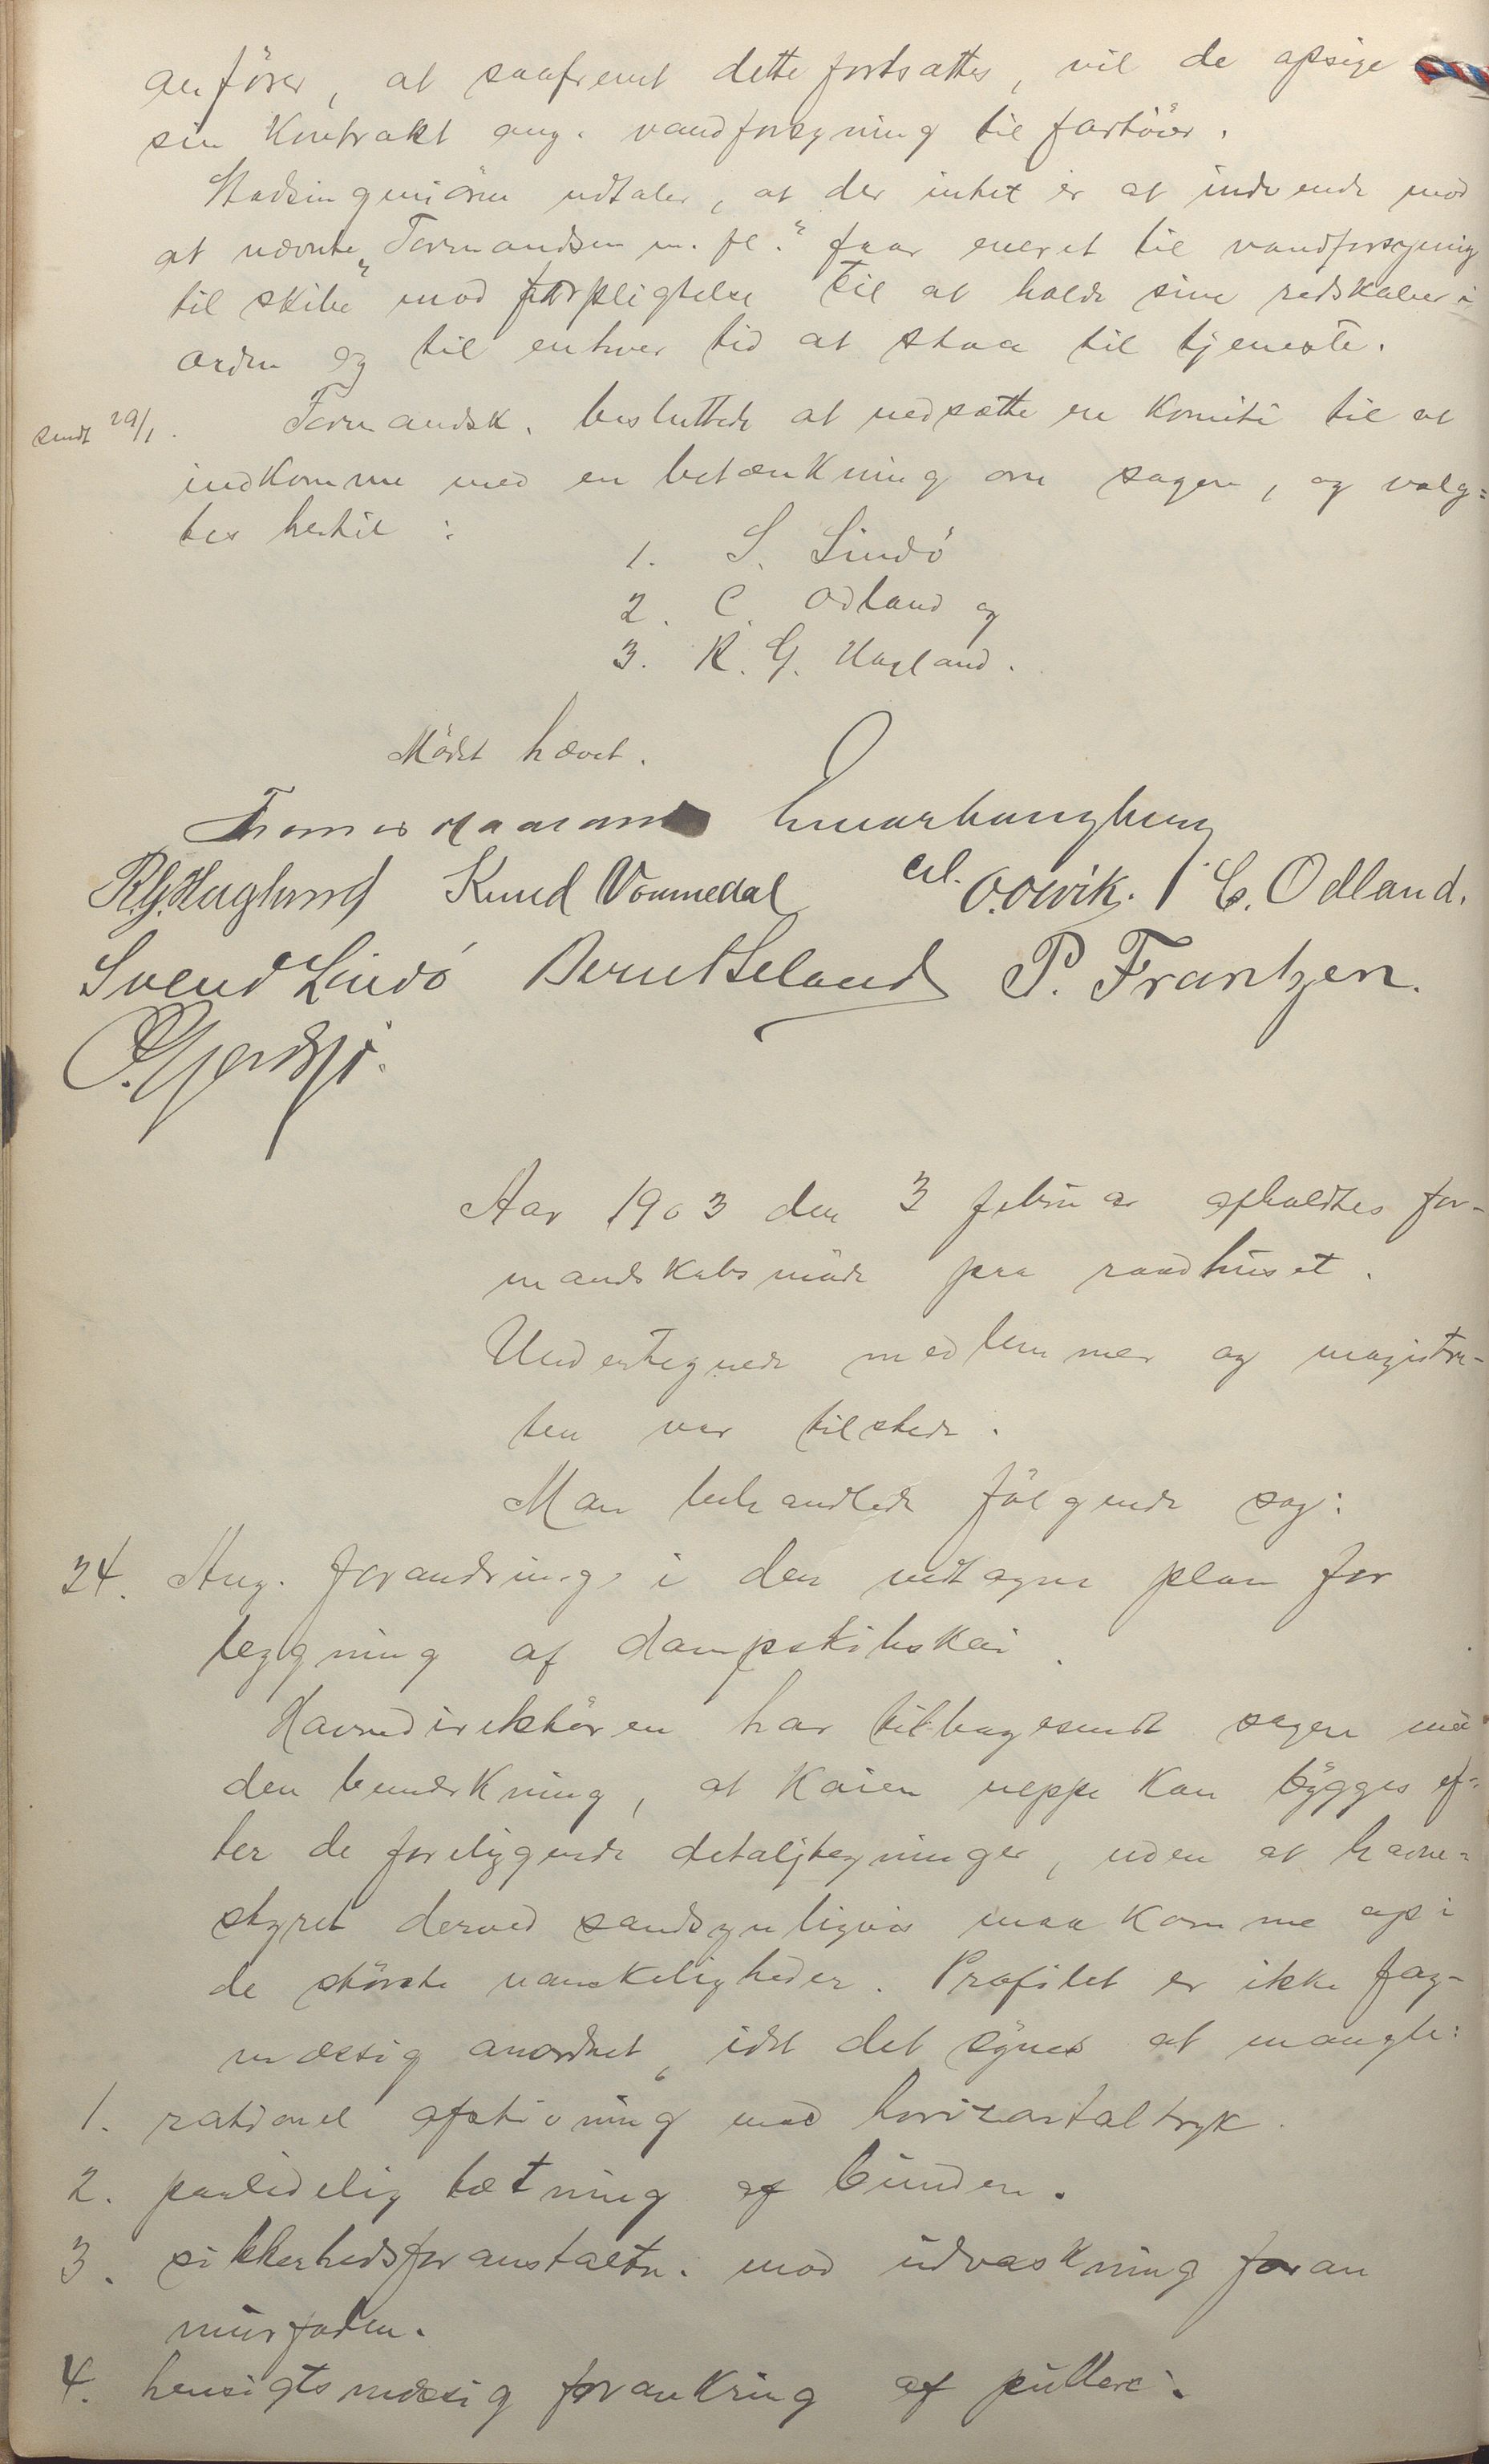 anfører, at saafremt dette fortsættes, vil de opsige
sin Kontrakt ang. vandforsyning til fartøier.
Stadsingeniøren udtaler, at der intet er at indvende mod
at nævnte "Tormandsen m. fl." faar eneret til vandforsyning
til skibe mod forpligtelse til at holde sine redskaber i
orden og til enhver tid at staa til tjeneste.
sendt 29/1.
Formandsk. besluttede at nedsætte en Komité til at
indkomme med en betænkning om sagen, og valg=
tes hertil :
1. S. Lindø
2. C. Odland og
3. R. G. Hagland.
Mødet hævet.
Thomas
R.G. Haglund Knud Vommedal O. Olvik. C. Odland.
Svend Lindø Bernt Seland P. Frantzen.
Aar 1903 den 3 februar afholdtes for-
mandskabsmøde paa raadhuset.
Undertegnede medlemmer og magistra-
ten var tilstede.
Man behandlede følgende sag:
24. Ang. forandring i den vedtagne plan for
bygning af dampskibskai.
Havnedirektøren har tilbagesendt sagen med
den bemærkning, at Kaien neppe kan bygges ef-
ter de foreliggende detaljtegninger, uden at havne=
styret derved sandsynligvis maa komme op i
de største vanskeligheder. Profilet er ikke fag-
mæssig anordnet, idet det synes at mangle:
1. rationel afstivning mod horizontaltryk.
2. paalidelig tætning af bunden.
3. sikkerhedsforanstaltn. mod udvaskning foran
murfoden.
4. hensigtsmæssig forankring af pullere.